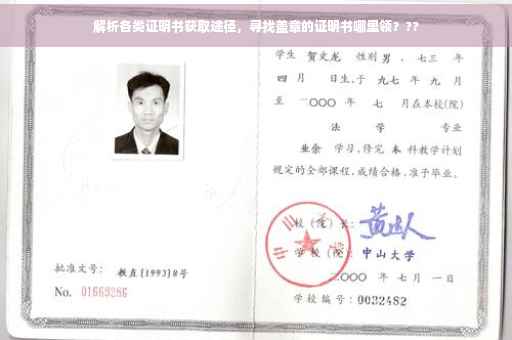 解析各类证明书获取途径，寻找盖章的证明书哪里领？??
学生 贺文龙 性别 男，七三 年
四 月 日生，于 九七 年 九 月
至 二〇〇〇 年 七 月在本校(院)
法 学 专业
业余 学习，修完 本 科教学计划
规定的全部课程，成绩合格，准予毕业。
校（院）长：
学校（院）：中山大学
二〇〇〇 年 七 月 一 日
学校编号：0032482
批准文号：教直[1993]8号
No. 01669286